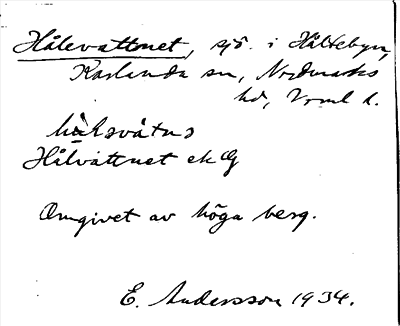 Hålevattnet, sjö i Hältebyn,
Karlanda sn, Nordmarks
hd, Vrml l.
Hålvattnet ek
Omgivet av höga berg.
E. Andersson 1934.